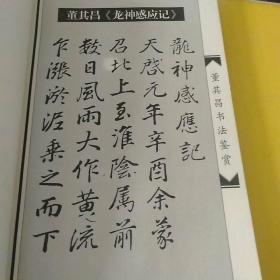 董其昌《龙神感应记》
龍神感應記
天啓元年辛酉余蒙
召北上至淮陰属前
数日風雨大作黄流
乍漲淤泥乗之而下
董其昌书法鉴赏